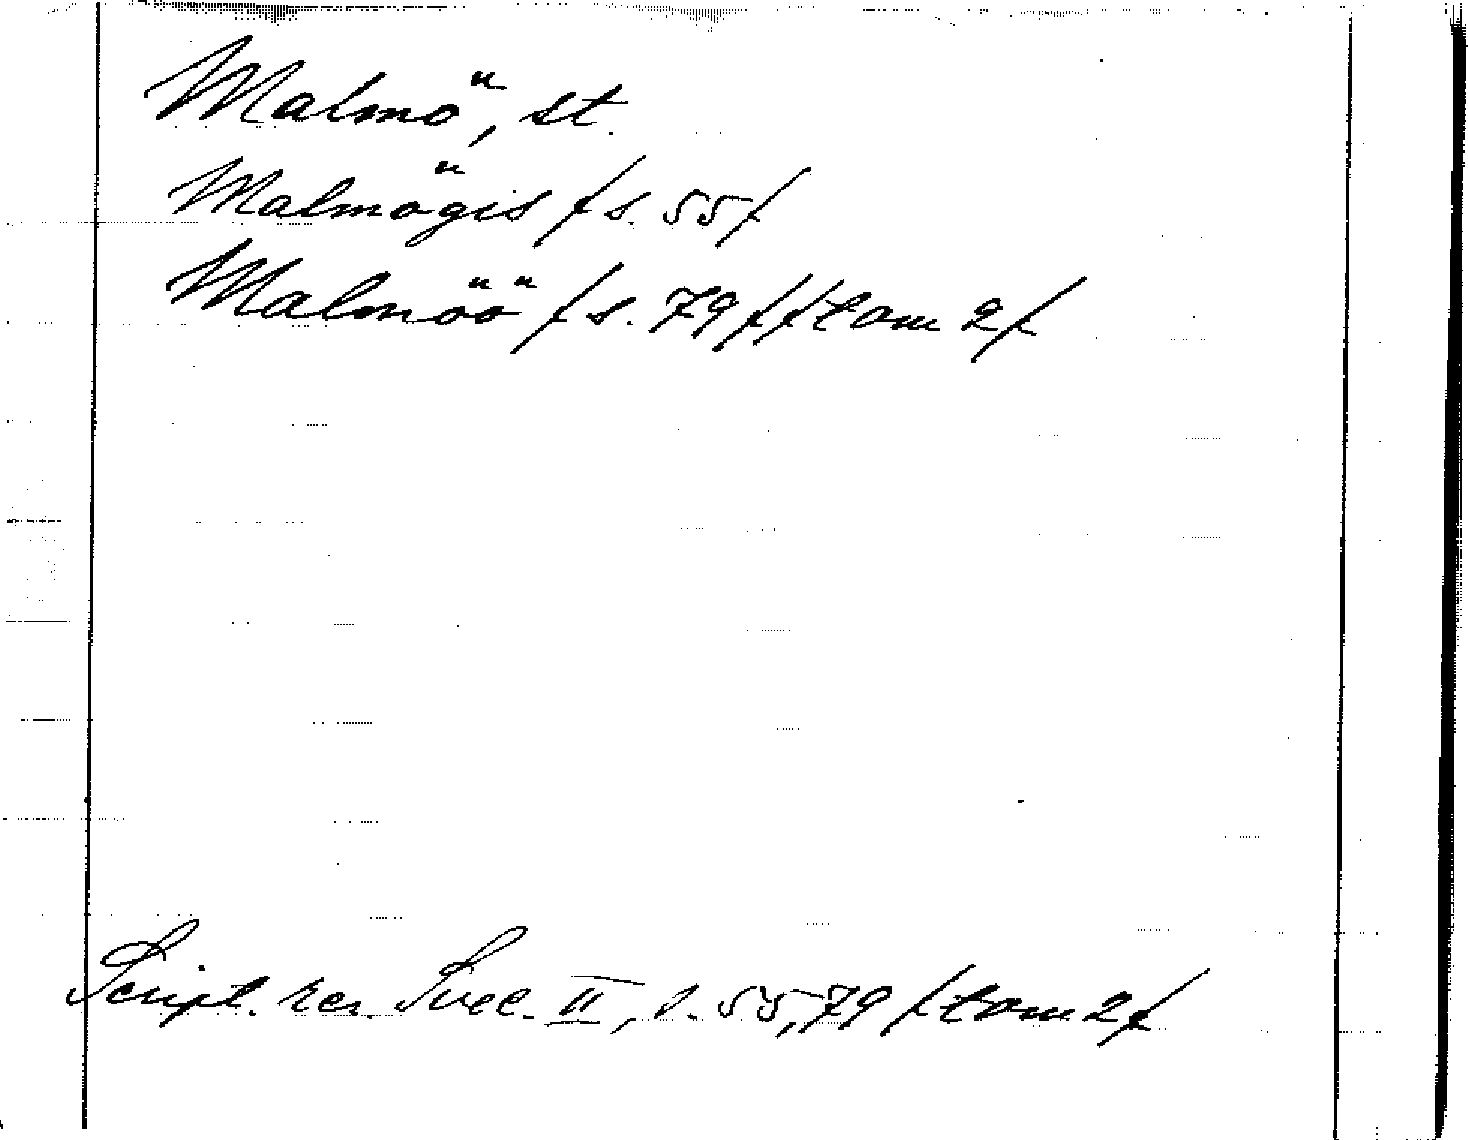 Malmö, st.
Malmögis /s. 55/
Malmöö /s. 79/ /tom 2/
Script. rer. Svec. II, s. 55, 79 /tom 2/